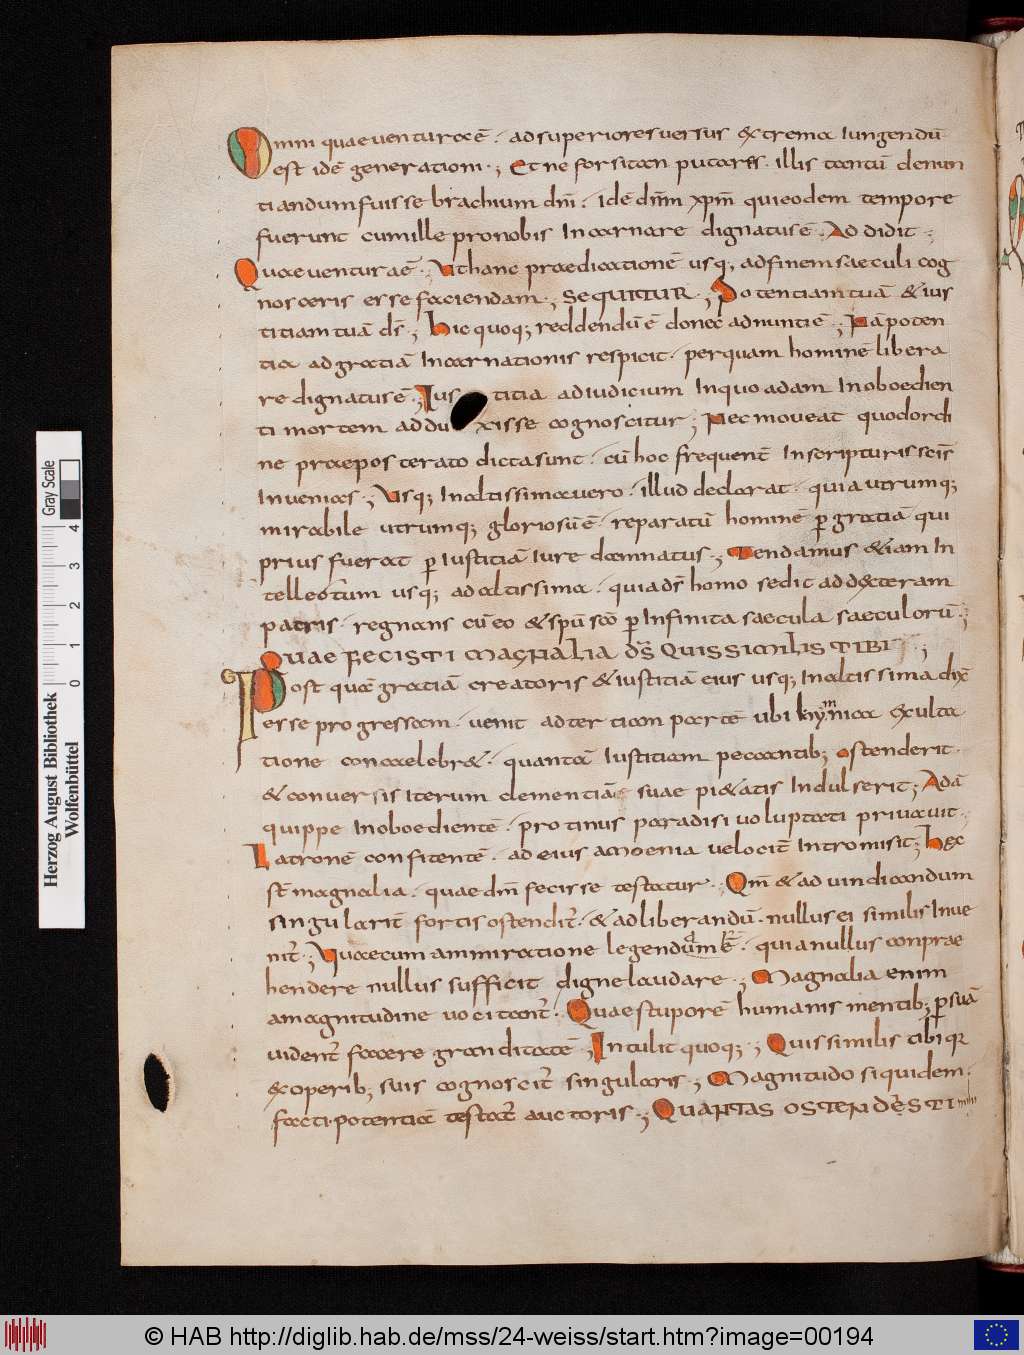 Omni quae ventura ē · ad superiores versus extrema iungendū
est idē generationi · ; Et ne forsitan putares · illis tantū denun
tiandum fuisse brachium dn̄i · idē dn̄m xp̄m qui eodem tempore
fuerunt cum ille pro nobis incarnare dignatus ē · Addidit ·
Quae ventura ē · Ut hanc praedicationē usq; ad finem saeculi cog
nosceris esse faciendam · ; SEQUITUR · ; Potentiam tuā & ius
titiam tuā ds̄ · ; hic quoq; reddendū ē donec adnuntiē · ; Nā poten
tia ad gratiā incarnationis respicit · per quam hominē libera
re dignatus ē · ; Ius titia ad iudicium in quo adam inoboedien
ti mortem addu xisse cognoscitur ; Nec moveat quod ordi
ne praeposterato dicta sunt · cū hoc frequent̄ in scripturis sc̄is
invenias · ; Usq; in altissima vero · illud declarat · quia utrumq;
mirabile utrumq; gloriosū ē · reparatū hominē p gratiā qui
prius fuerat p iustitiā iure damnatus · ; Tendamus &iam in
tellectum usq; ad altissima · quia ds̄ homo sedit ad dexteram
patris · regnans cū eo & sp̄u sc̄o p infinita saecula saeculorū · ;
QUAE FECISTI MAGNALIA DS̄ QUIS SIMILIS TIBI · ;
Post quā gratiā creatoris & iustitiā eius usq; in altissima dix̄
esse progressam · venit ad tertiam partē ubi hiymnica exulta
tione concaelebr& · quantā iustitiam peccantib; ostenderit ·
& conversis iterum clementiā suae pi&atis indulserit ; Adā
quippe inoboedientē · protinus paradisi voluptati privavit ·
Latronē confitentē · ad eius amoenia velocit̄ intromisit ; hęc
st̄ magnalia · quae dn̄m fecisse testatur · Qm̄ & ad vindicandum
singularit̄ fortis ostendit̄ · & ad liberandū · nullus ei similis inve
nit̄ · ; Quae cum ammiratione legendum ē · quia nullus conprae
hendere nullus sufficit digne laudare · ; Magnalia enim
a magnitudine vocitant̄ · Quae stuporē humanis mentib; p suā
vident̄ facere granditatē · ; Intulit quoq; · ; Quis similis tibi qr̄
ex operib; suis cognoscit̄ singularis · ; Magnitudo siquidem ·
facti · potentiā testat̄ auctoris · ; QUANTAS OSTENDISTI
Herzog August Bibliothek
Wolfenbüttel
Gray Scale
0 1 2 3 4
© HAB http://diglib.hab.de/mss/24-weiss/start.htm?image=00194